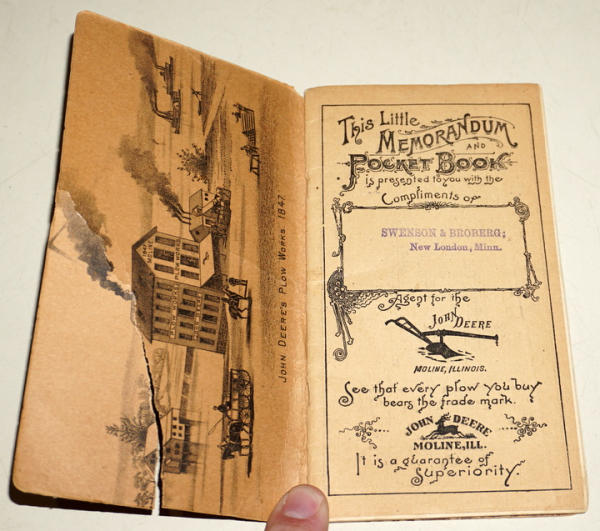 MOLINE
PLOW WORKS
JOHN DEERE'S PLOW WORKS. 1847.
This Little
MEMORANDUM
AND
POCKET BOOK
is presented to you with the
Compliments of
SWENSON & BROBERG;
New London, Minn.
Agent for the
JOHN DEERE
MOLINE, ILLINOIS.
See that every plow you buy
bears the trade mark.
JOHN DEERE
MOLINE, ILL.
It is a guarantee of
Superiority.